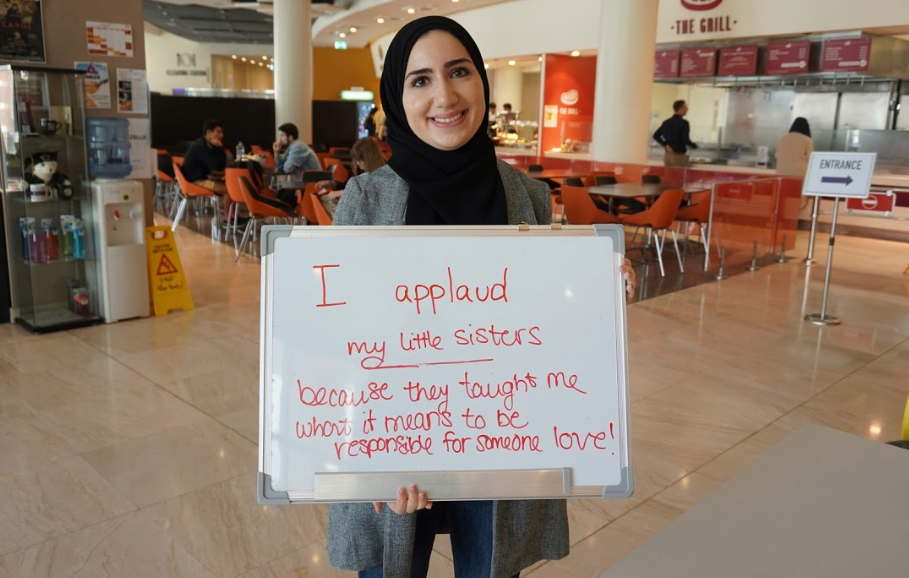 THE GRILL
ENTRANCE
I applaud
my little sisters
because they taught me
what it means to be
responsible for someone love!